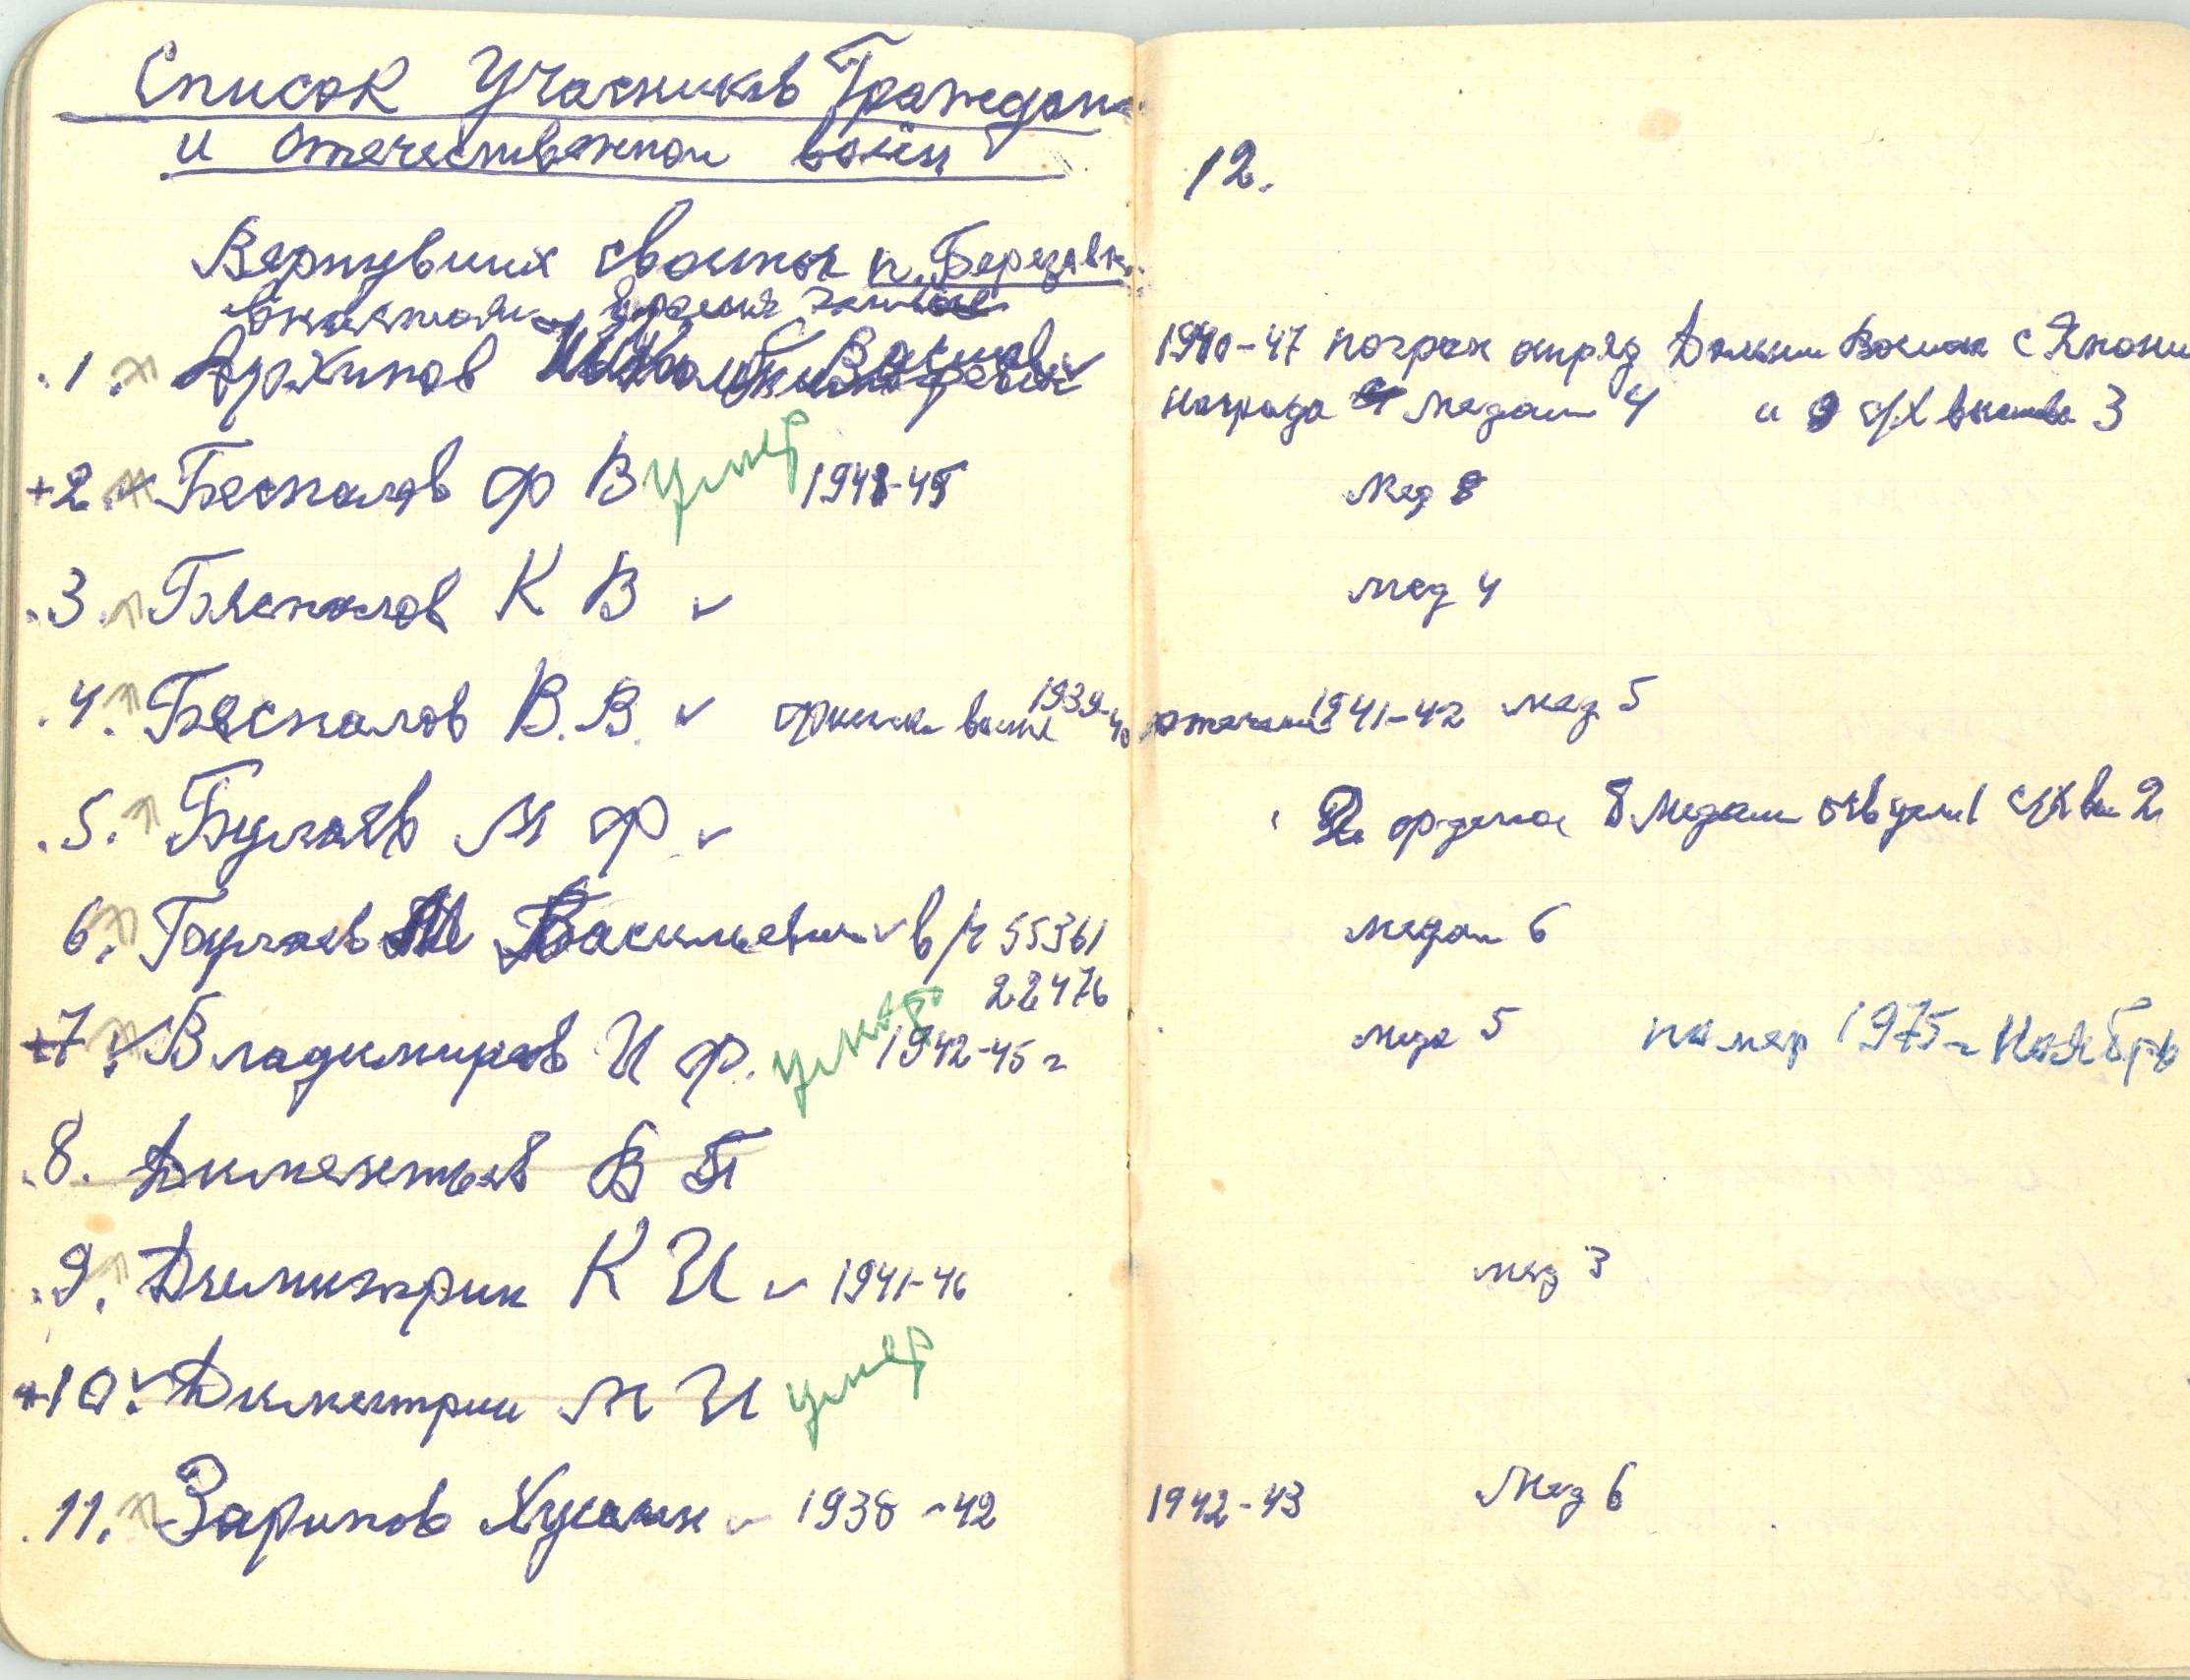 Список Учасников Граждан
и отечественной воин
Вернувших свойны п. Березовк
.1. Архипов
+2. Беспалов Ф В умер 1941-45
.3. Беспалов К В
.4. Беспалов В. В. финска воине 1939-40
.5. Булаев М Ф
6. Булаев Васильевич в/ч 55361
22476
+7. Владимиров И Ф. умер 1942-45 г
.8. Дементьев В П
.9. Димитрии К И 1941-46
+10. Димитрии М И умер
.11. Зарипов Хусаин 1938-42
12.
1940-47 погран отряд с Япони
награда медали 4 и с/х 3
мед 8
мед 4
1941-42 мед 5
2 ордена 8 медали с/х 2
медали 6
меда 5 помер 1975 г Ноябрь
мед 3
1942-43 мед 6